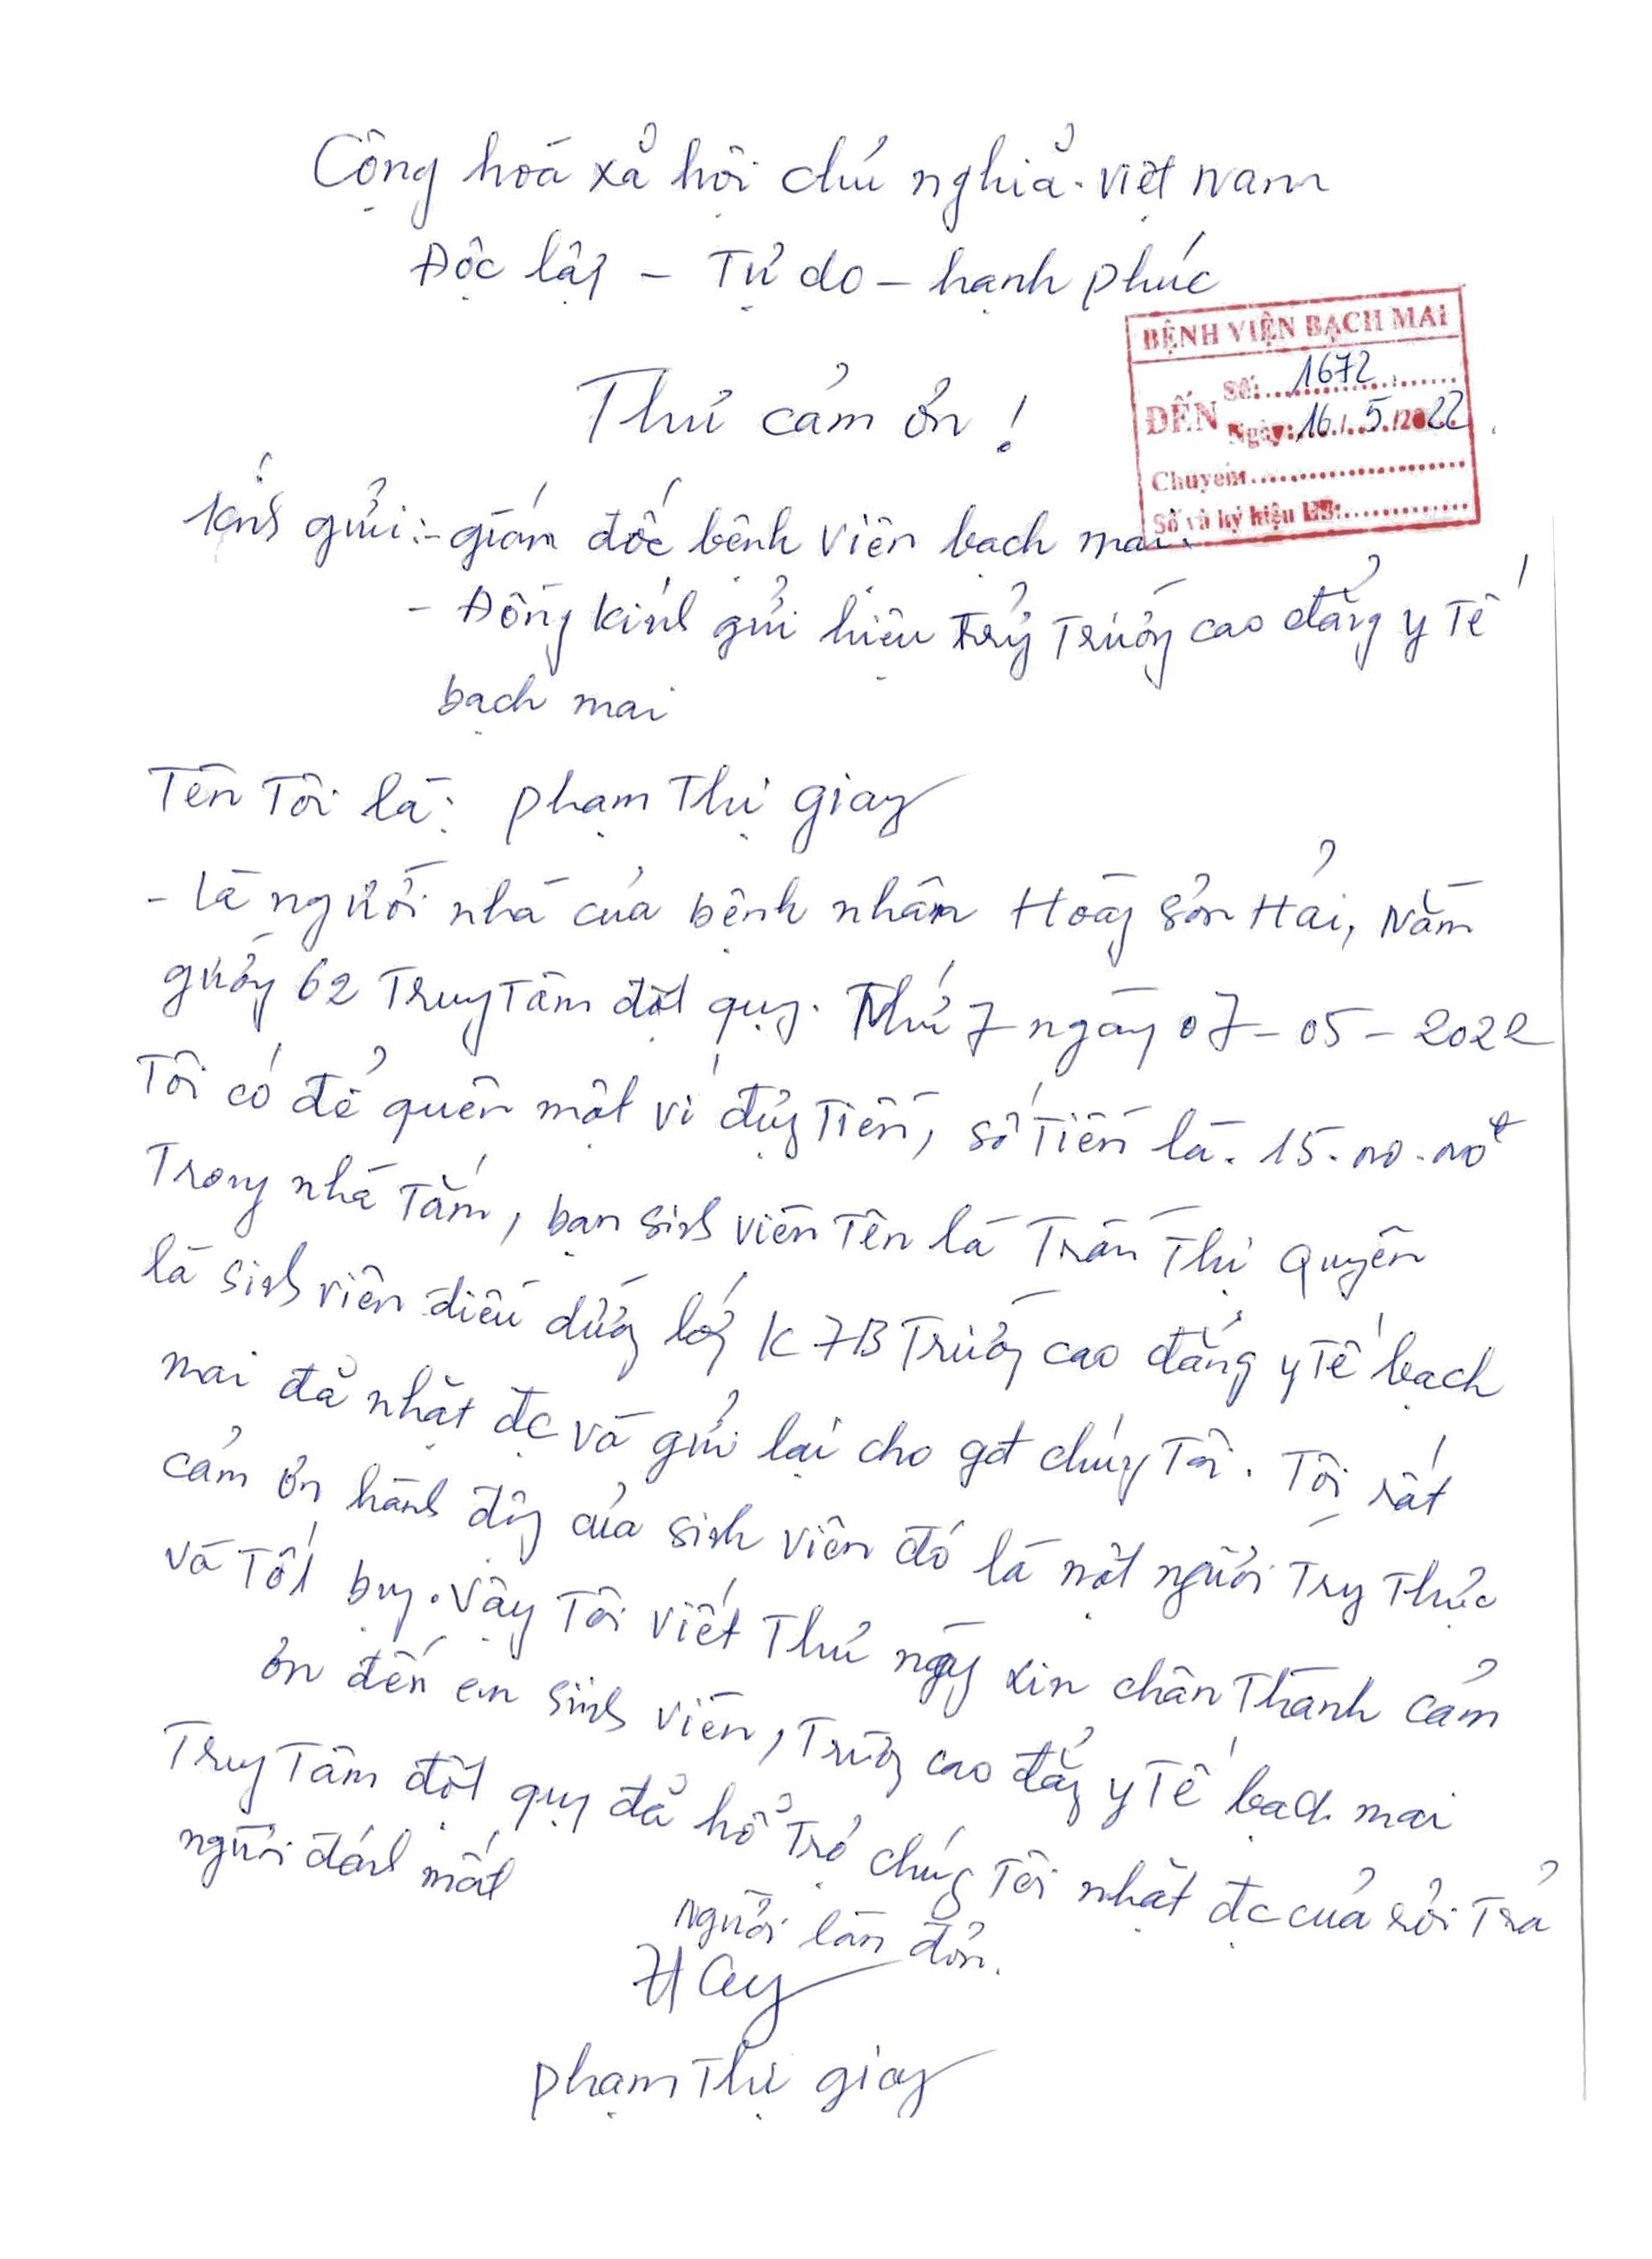 Cộng hoà xả hội chủ nghiả. việt Nam
Độc lập – Tự do – hạnh phúc
BỆNH VIỆN BẠCH MAI
Số: 1672
ĐẾN
Ngày: 16/5/2022
Chuyển:
Số và ký hiệu HS:
Thư cảm ơn !
kính gửi :- giám đốc bệnh viện bạch mai.
- Đồng kính gửi hiệu trưởng Trường cao đẳng y Tế
bạch mai
Tên Tôi là: phạm Thị giang
- là người nhà của bệnh nhân Hoàng Sơn Hải, Nằm
giường 62 Trung Tâm đột quỵ. Thứ 7 ngày 07-05-2022
Tôi có để quên một ví đựng Tiền, số Tiền là. 15.000.000đ
Trong nhà Tắm, bạn sinh viên Tên là Trần Thị Quyên
là sinh viên điều dưỡng lớp K7B Trường cao đẳng y Tế bạch
mai đả nhặt đc và gửi lại cho gđ chúng Tôi. Tôi rất
cảm ơn hành động của sinh viên đó là một người Trung Thực
và Tốt bụng. Vậy Tôi viết Thư này xin chân Thành cảm
ơn đến em sinh viên, Trường cao đẳng y Tế bạch mai
Trung Tâm đột quỵ đả hổ Trợ chúng Tôi nhặt đc của rơi Trả
người đánh mất
người làm đơn.
phạm Thị giang